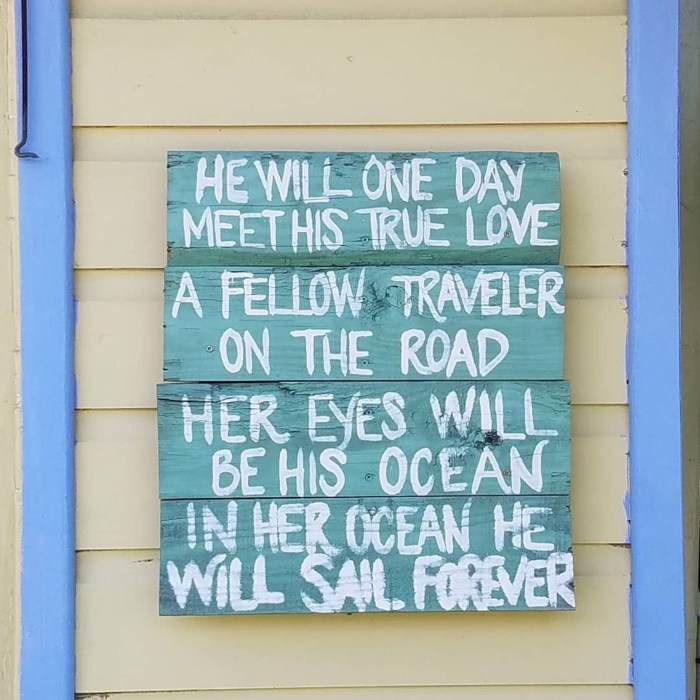 HE WILL ONE DAY
MEET HIS TRUE LOVE
A FELLOW TRAVELER
ON THE ROAD
HER EYES WILL
BE HIS OCEAN
IN HER OCEAN HE
WILL SAIL FOREVER